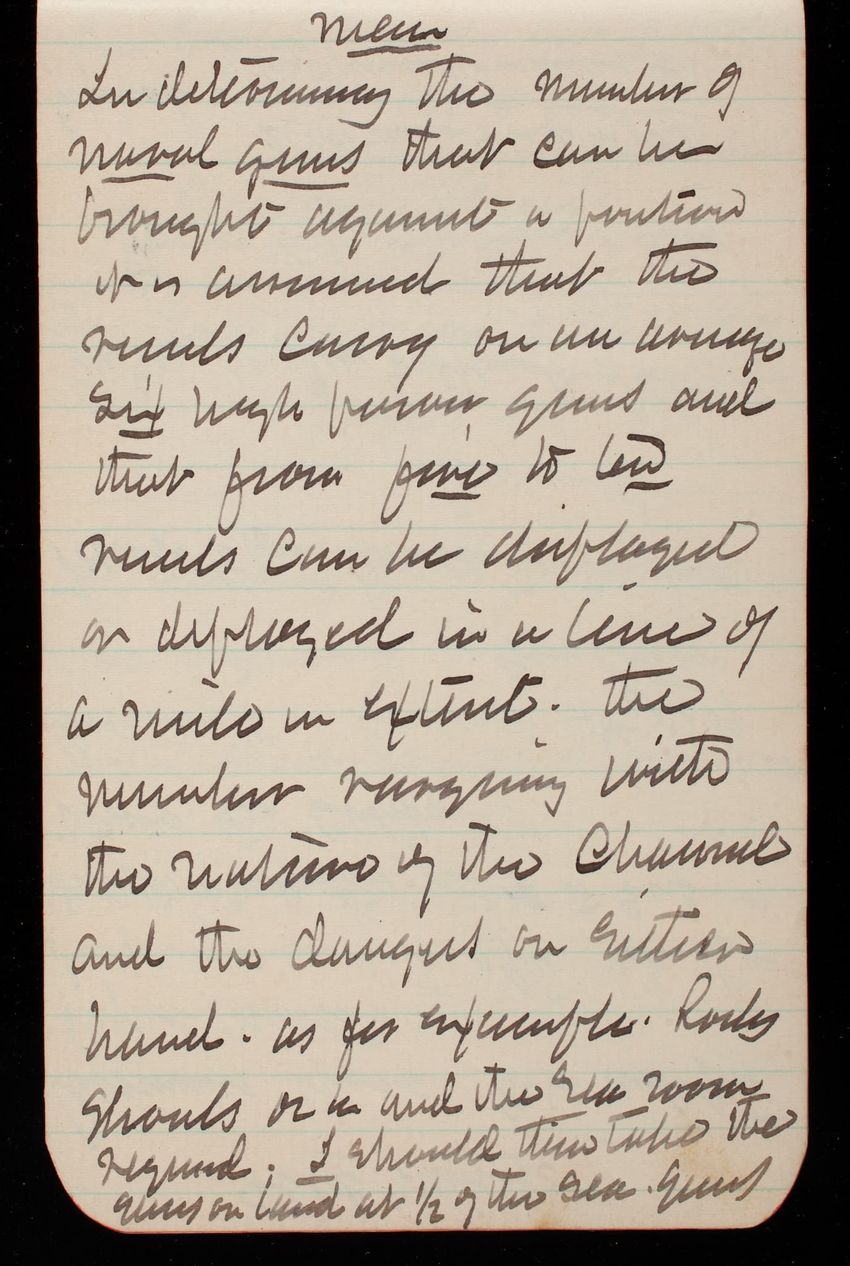 Mem
In determining the number of
naval guns that can be
brought against a position
it is assumed that the
vessels carry on an average
six high power guns and
that from five to ten
vessels can be displayed
or deployed in a line of
a mile in extent. the
number varying with
the nature of the Channel
and the dangers on either
hand. as for example. Rocks
Shoals or and the sea room
required. I should then take the
guns on land at 1/2 of the sea. guns